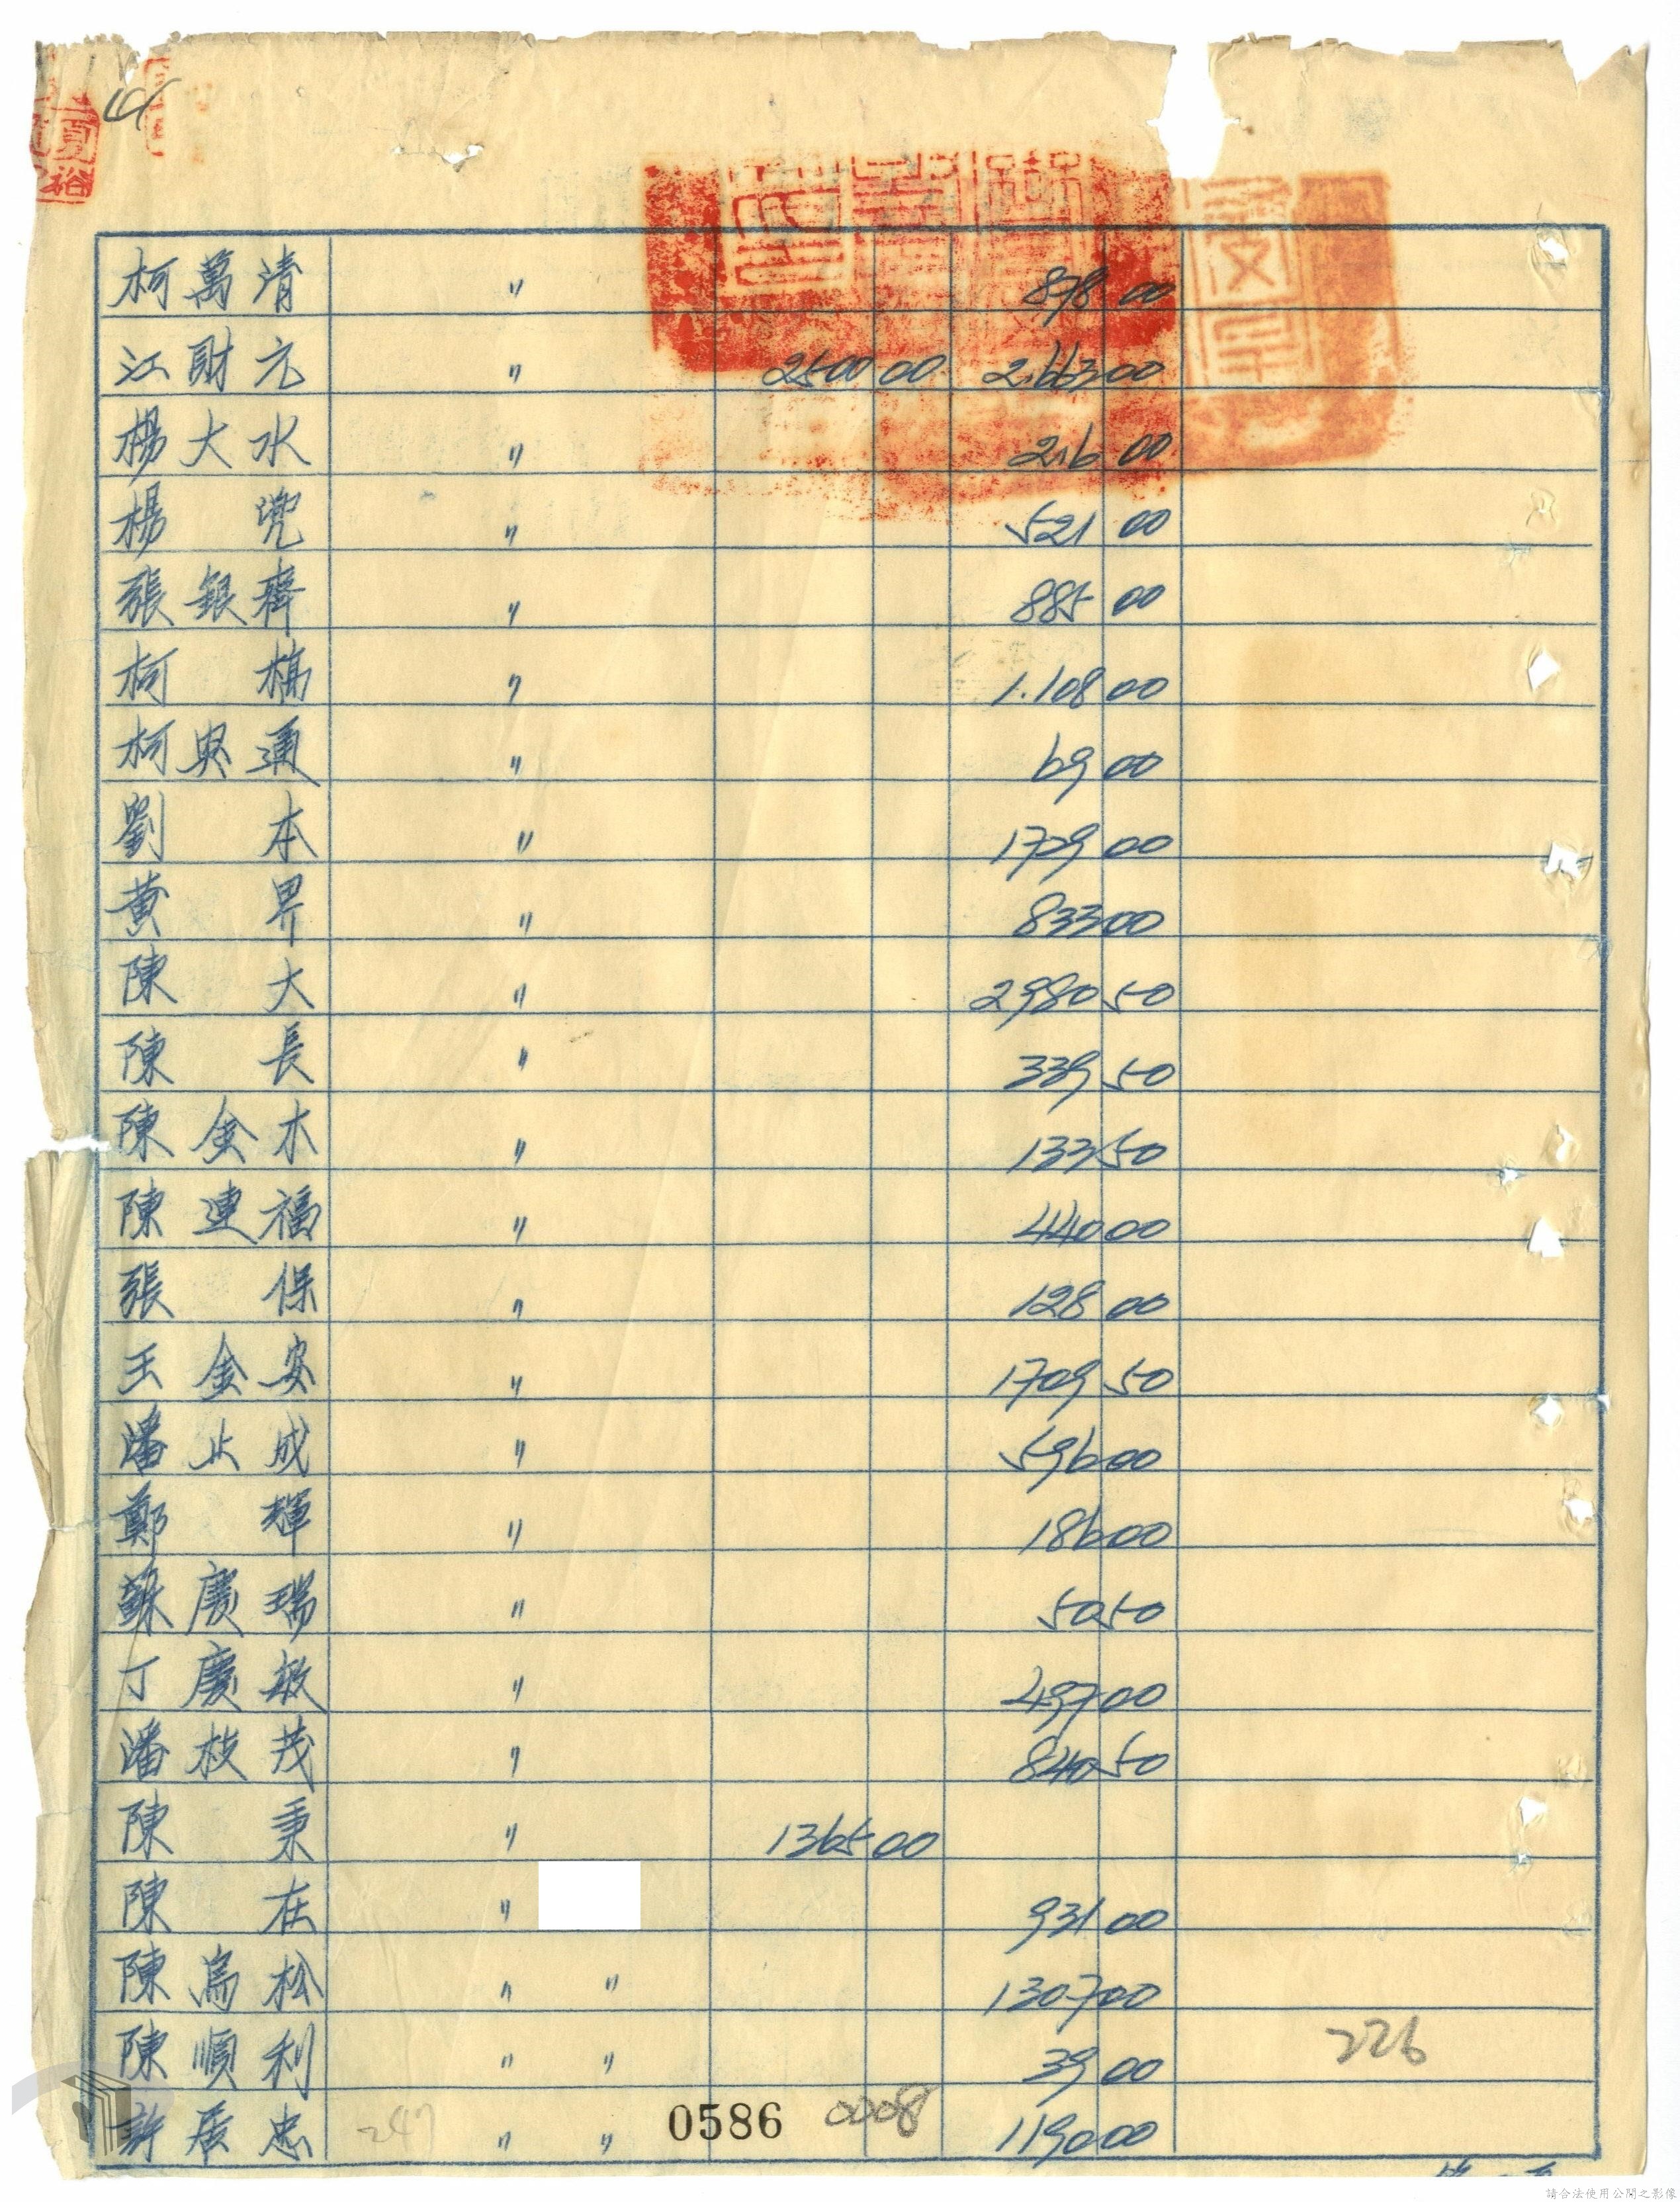 柯萬清 〃 878 00
江財元 〃 2500 00 2.663 00
楊大水 〃 216 00
楊兜 〃 521 00
張銀 〃 885 00
柯 〃 1.108 00
柯興通 〃 69 00
劉本 〃 1709 00
黃界 〃 833 00
陳大 〃 2980 50
陳長 〃 339 50
陳金木 〃 133 50
陳連福 〃 440 00
張保 〃 128 00
王金安 〃 1709 50
潘止成 〃 596 00
鄭輝 〃 186 00
蘇慶瑞 〃 50 50
丁慶敏 〃 497 00
潘枝茂 〃 840 50
陳秉 〃 1365 00
陳在 〃 931 00
陳為松 〃 〃 1307 00
陳順利 〃 〃 39 00 226
許居忠 247 〃 〃 0586 0008 1190 00
請合法使用公開之影像